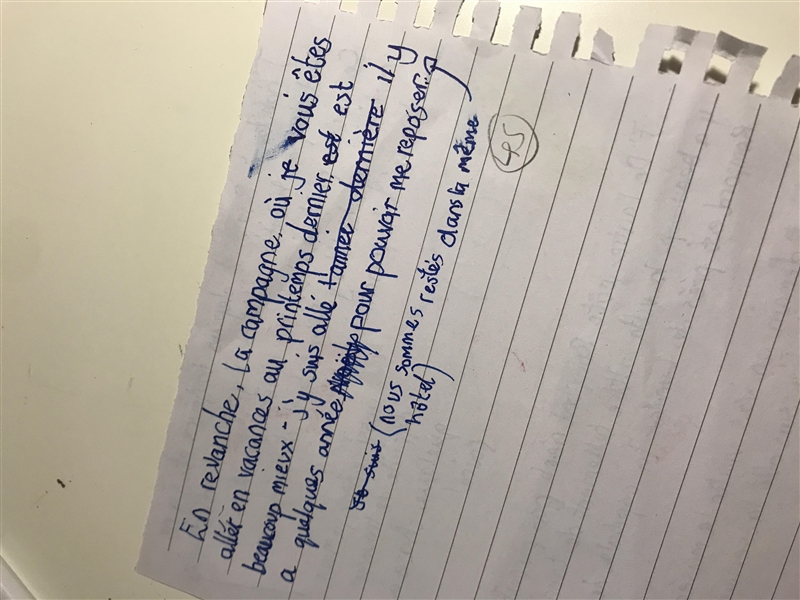 En revanche, la campagne où je vous êtes
allér en vacances au printemps dernier est est
beaucoup mieux - j'y suis allé l'année dernière il y
a quelques année pour pouvoir me reposer
Je suis (nous sommes restés dans la même
hôtel)
45